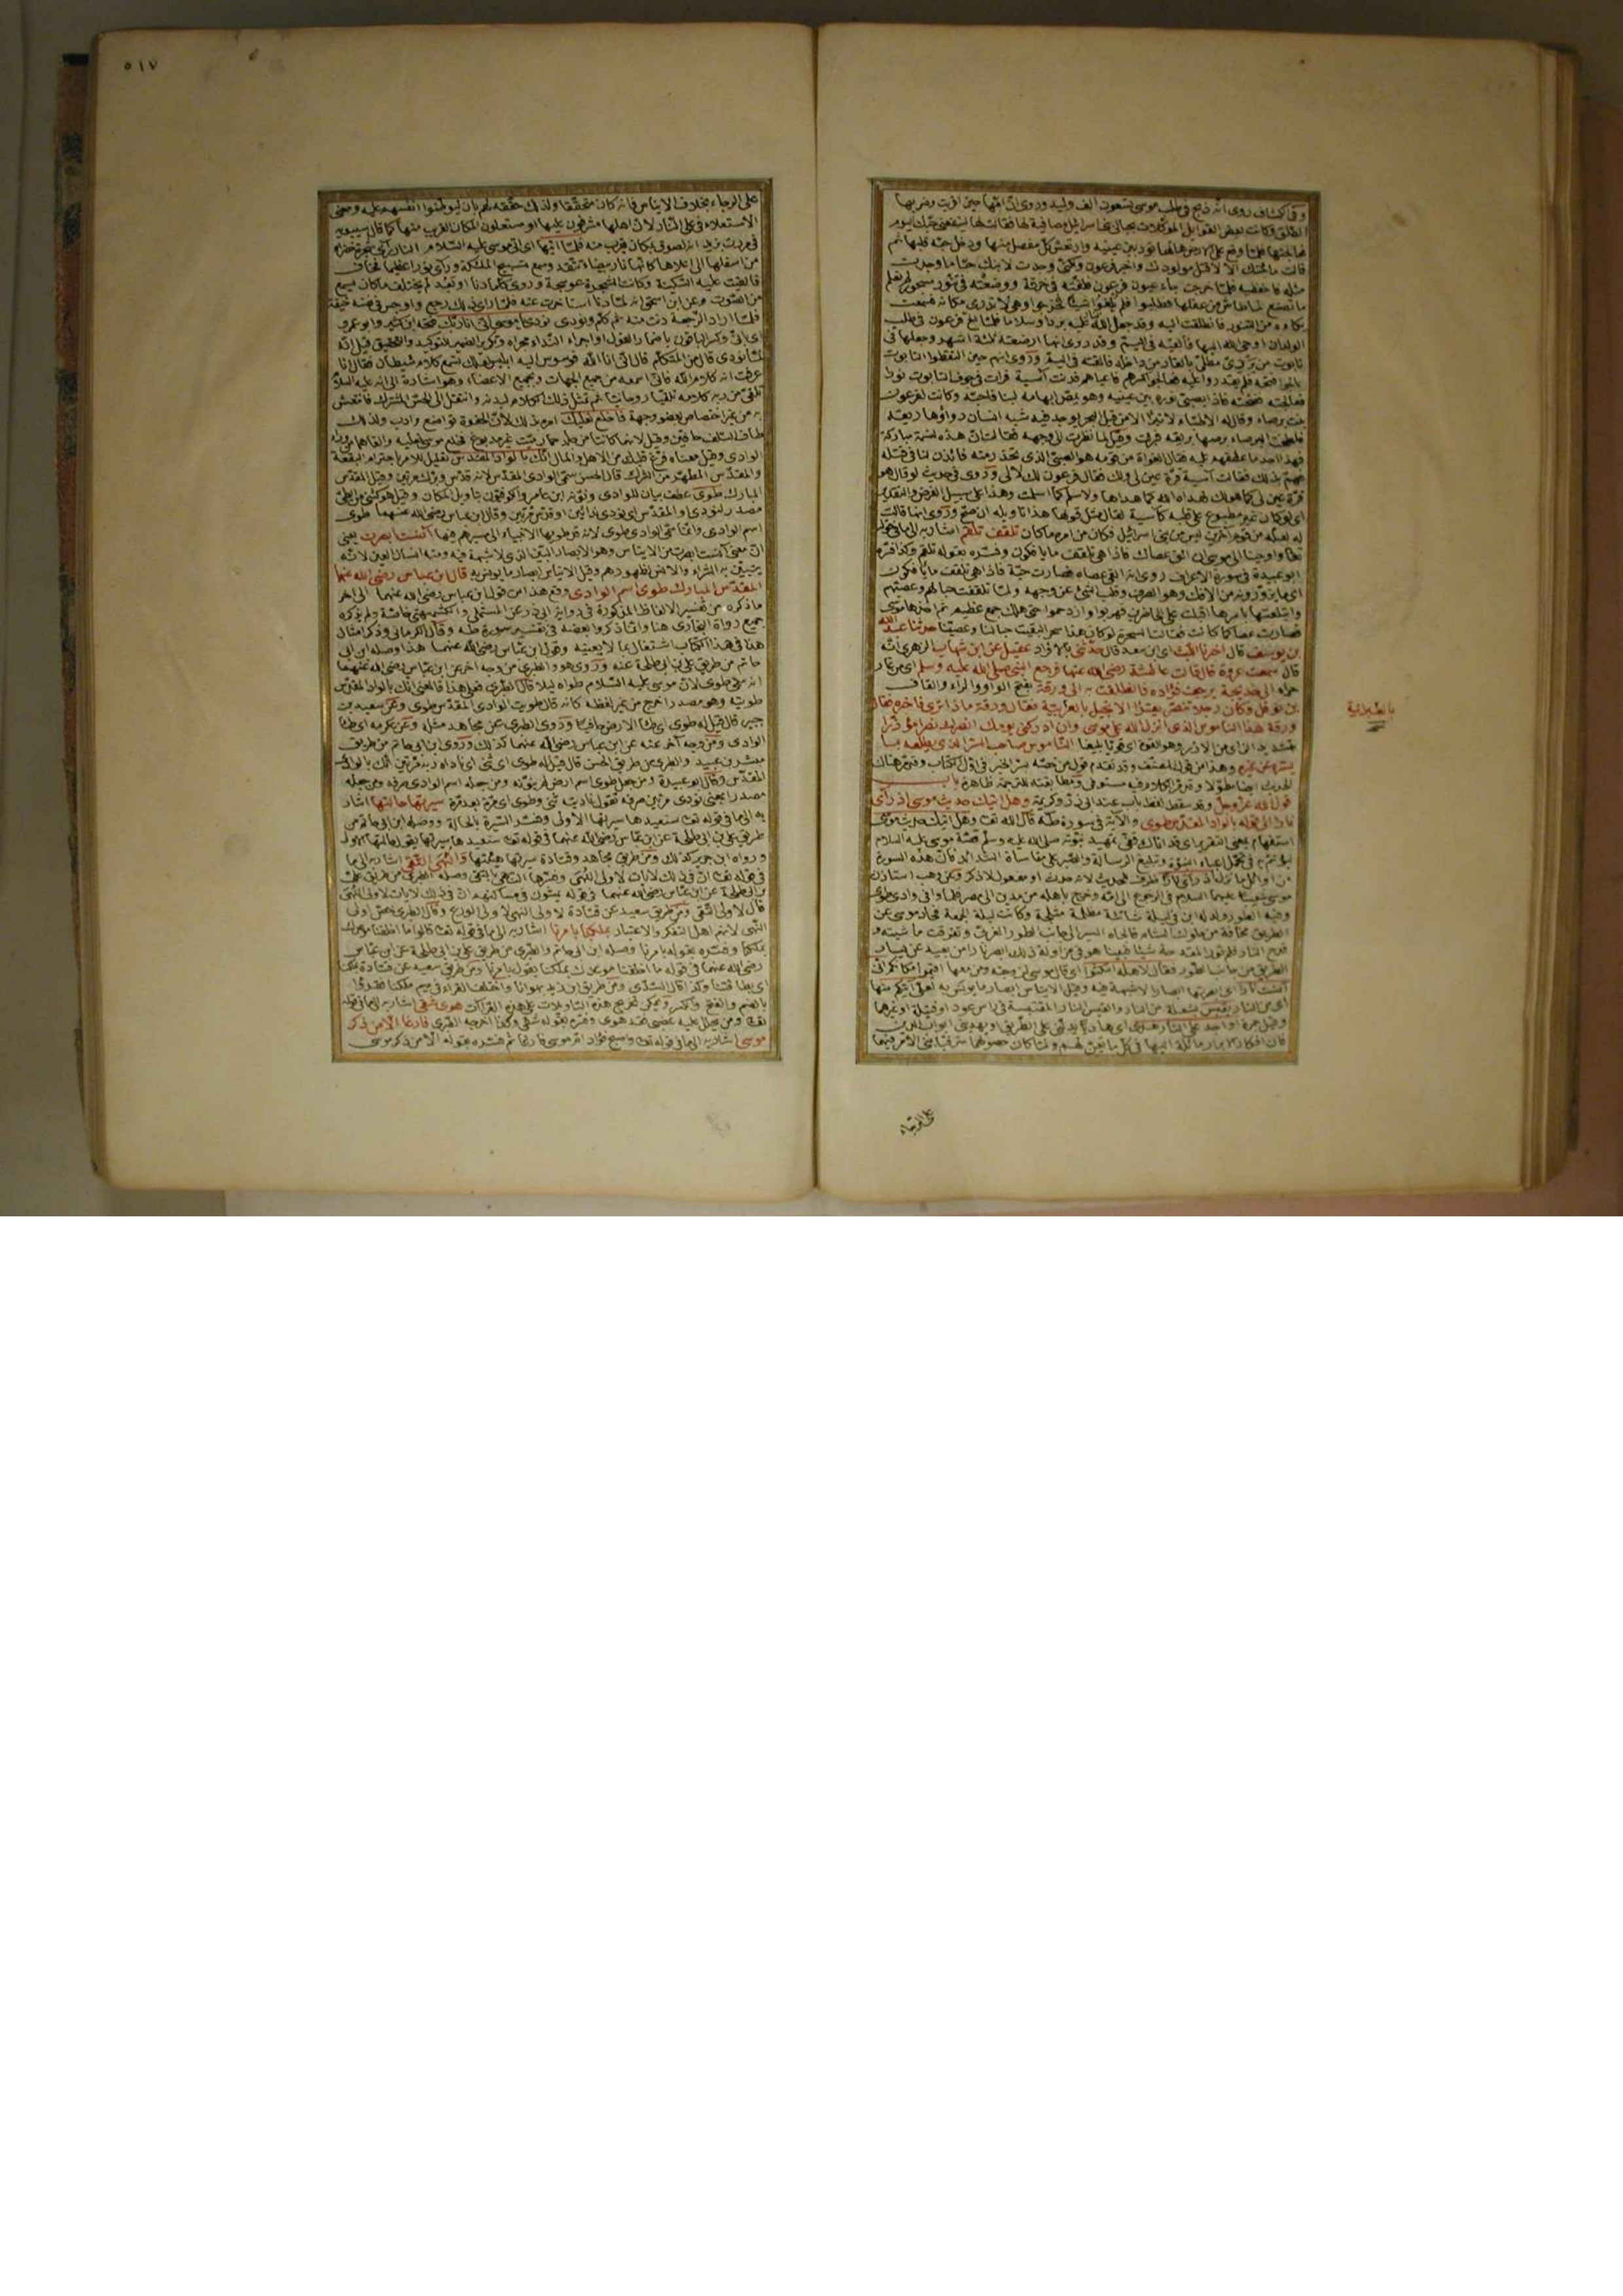 وفى الكشاف روى انه ذبح فى طلب موسى تسعون الف وليد وروى ان امها حين اقربت وضربها
الطلق وكانت بعض القوابل الموكلات بحبالى بنى اسرائيل مصافية لها فقالت لها لينفعنى حبك اليوم
فعالجتها فلما وقع على الارض هالها نور بين عينيه وارتعش كل مفصل منها ودخل حبه قلبها ثم
قالت ما جئتك الا لاقبل مولودك واخبر فرعون ولكنى وجدت لابنك حبا ما وجدت
مثله فاحفظيه فلما خرجت جاء عيون فرعون فلفته فى خرقة ووضعته فى تنور مسجور لم تعلم
ما تصنع لما طاش من عقلها فطلبوا فلم يلقوا شيئا فخرجوا وهى لا تدرى مكانه فسمعت
بكاءه من التنور فانطلقت اليه وقد جعل الله النار عليه بردا وسلاما فلما الح فرعون فى طلب
الولدان اوحى الله اليها فالقيه فى اليم وقد روى انها ارضعته ثلاثة اشهر وجعلها فى
تابوت من بردى مطلى بالقار من داخله فالقته فى اليم وروى انهم حين التقطوا التابوت
فعالجته ففتحته فاذا بصبى نوره بين عينيه وهو يمص ابهامه لبنا فاحبته وكانت لفرعون
بنت برصاء وقال له الاطباء لا تبرأ الا من قبل البحر يوجد فيه شبه انسان دواؤها ريقه
فلطخت البرصاء برصها بريقه فبرئت وقيل لما نظرت الى وجهه فقالت ان هذه لنسمة مباركة
فهذا احد ما عطفهم عليه فقال الغواة من قومه هو الصبى الذى نحذر منه فائذن لنا فى قتله
فهم بذلك فقالت آسية قرة عين لى ولك فقال فرعون لك لا لى وروى فى حديث لو قال هو
قرة عين لى كما هو لك لهداه الله كما هداها ولاسلم كما اسلمت وهذا على سبيل الفرض والتقدير
اى لو كان غير مطبوع على قلبه كآسية لقال مثل قولها هذا تاويله ان صح وروى انها قالت
له لعله من قوم آخرين ليس من بنى اسرائيل فكان من امره ما كان تلقف تلقم اشار به الى ما فى قوله
تعالى واوحينا الى موسى ان الق عصاك فاذا هى تلقف ما يافكون وفسره بقوله تلقم وكذا فسره
ابو عبيدة فى سورة الاعراف روى انه القى عصاه فصارت حية فاذا هى تلقف ما يافكون
اى ما يزورونه من الافك وهو الصرف وقلب الشئ عن وجهه ولما تلقفت حبالهم وعصيهم
وابتلعتها باسرها اقبلت على الحاضرين فهربوا وازدحموا حتى هلك جمع عظيم ثم اخذها موسى
فصارت عصا كما كانت فقالت السحرة لو كان هذا سحرا لبقيت حبالنا وعصينا حدثنا عبد الله
بن يوسف قال اخبرنا الليث اى ابن سعد قال حدثنى بالافراد عقيل عن ابن شهاب الزهرى انه
قال سمعت عروة قال قالت عائشة رضى الله عنها فرجع النبى صلى الله عليه وسلم اى من غار
حراء الى خديجة يرجف فؤاده فانطلقت به الى ورقة بفتح الواو والراء والقاف
بن نوفل وكان رجلا تنصر يقرأ الانجيل بالعربية فقال ورقة ماذا ترى فاخبره فقال
ورقة هذا الناموس الذى انزل الله على موسى وان ادركنى يومك انصرك نصرا مؤزرا
بتشديد الزاى من الازر وهو القوة اى قويا بليغا الناموس صاحب السر الذى يطلعه بما
يستره عن غيره وهذا من قول المصنف وقد تقدم قول من خصه بسر الخير فى اول الكتاب
الحديث ايضا مطولا ومر الكلام فيه مستوفى ومطابقته للترجمة ظاهرة باب
قول الله عز وجل وقد سقط لفظ باب عند ابى ذر وكريمة وهل اتيك حديث موسى اذ رأى
نارا الى قوله بالواد المقدس طوى والآية فى سورة طه قال الله تعالى وهل اتيك حديث موسى
استفهام بمعنى التقرير اى قد اتاك قفى تمهيد نبوته صلى الله عليه وسلم قصة موسى عليه السلام
ليأتم به فى تحمل اعباء النبوة وتبليغ الرسالة والصبر على مقاساة الشدائد فان هذه السورة
من اوائل ما نزل اذ رأى نارا ظرف للحديث لانه حدث او مفعول لاذكر وعن وهب استاذن
موسى شعيبا عليهما السلام فى الرجوع الى امه وخرج باهله من مدين الى مصر فلما وافى وادى طوى
وفيه الطور ولد له ابن فى ليلة شاتية مظلمة مثلجة وكانت ليلة الجمعة فحاد موسى عن
الطريق مخافة من ملوك الشام فالجاه السير الى جانب الطور الغربى وتفرقت ماشيته
قدح النار فلم تور المقدحة شيئا فبينا هو فى مزاولة ذلك ابصر نارا من بعيد عن يسار
الطريق من جانب الطور فقال لاهله امكثوا اى قال موسى لزوجته ومن معها اقيموا مكانكم انى
آنست نارا اى ابصرتها ابصارا لا شبهة فيه وقيل الايناس ابصار ما يونس به لعلى آتيكم منها
اى من النار بقبس بشعلة من النار والقبس النار المقتبسة فى رأس عود او فتيلة او غيرهما
وقيل جمرة او اجد على النار هدى اى هاديا يدلنى على الطريق او يهدينى ابواب الدين
فان افكار الابرار مائلة اليها فى كل ما يعن لهم ولما كان حصولهما مترقبا بنى الامر فيهما
بالعبرانية
على الرجاء
٥١٧
على الرجاء بخلاف الايناس فانه كان متحققا ولذلك حققه لهم بان ليوطنوا انفسهم عليه ومعنى
الاستعلاء فى على النار لان اهلها مشرفون عليها او مستعلون المكان القريب منها كما قال سيبويه
فى مررت بزيد انه لصوق بمكان يقرب منه فلما اتيها اى اتى موسى عليه السلام النار رأى شجرة خضراء
من اسفلها الى اعلاها كانها نار بيضاء تتقد وسمع تسبيح الملئكة ورأى نورا عظيما فخاف
فالقيت عليه السكينة وكانت الشجرة عوسجة وروى كلما دنا او بعد لم يختلف ما كان يسمع
من الصوت وعن ابن اسحق انه لما دنا استاخرت عنه فلما راى ذلك رجع واوجس فى نفسه خيفة
فلما اراد الرجعة دنت منه ثم كلم ونودى نودى يا موسى انى انا ربك فتحه ابن كثير وابو عمرو
اى بانى وكسره الباقون باضمار القول او اجراء النداء مجراه وتكرير الضمير للتوكيد والتحقيق قيل انه
لما نودى قال من المتكلم قال انى انا الله فوسوس اليه ابليس لعلك تسمع كلام شيطان فقال انا
عرفت انه كلام الله فانى اسمعه من جميع الجهات وبجميع الاعضاء وهو اشارة الى انه عليه السلام
تلقى من ربه كلامه تلقيا روحانيا ثم تمثل ذلك الكلام لبدنه وانتقل الى الحس المشترك فانتقش
به من غير اختصاص بعضو وجهة فاخلع نعليك امره بذلك لان الحفوة تواضع وادب ولذلك
طاف السلف حافين وقيل لانهما كانتا من جلد حمار ميت غير مدبوغ فخلع موسى نعليه والقاهما من وراء
الوادى وقيل معناه فرغ قلبك من الاهل والمال انك بالواد المقدس تعليل للامر باحترام البقعة
والمقدس المطهر من الشرك قال الحسن سمى الوادى المقدس لانه قدس وبورك مرتين وقيل المقدس
المبارك طوى عطف بيان للوادى ونونه ابن عامر والكوفيون بتاويل المكان وقيل هو كثنى من الطى
مصدر لنودى والمقدس اى نودى نداءين او قدس مرتين وقال ابن عباس رضى الله عنهما طوى
اسم الوادى وانما سمى الوادى طوى لانه مر طويها الانبياء الى سيرهم فيها آنست ابصرت يعنى
ان معنى آنست ابصرت من الايناس وهو الابصار البين الذى لا شبهة فيه ومنه انسان العين لانه
يتبين به الشئ والانس لظهورهم وقيل الايناس ابصار ما يونس به قال ابن عباس رضى الله عنهما
المقدس المبارك طوى اسم الوادى وقع هذا من قول ابن عباس رضى الله عنهما الى آخر
ما ذكره من تفسير الالفاظ المذكورة فى رواية ابى ذر عن المستملى والكشميهنى خاصة ولم يذكره
جميع رواة البخارى هنا وانما ذكروا بعضه فى تفسير سورة طه وقال الكرمانى وذكر امثال
هذا فى هذا الكتاب اشتغال بما لا يعنيه وقول ابن عباس رضى الله عنهما هذا وصله ابن ابى
حاتم من طريق على بن ابى طلحة عنه وروى هو والطبرى من وجه آخر عن ابن عباس رضى الله عنهما
انه سمى طوى لان موسى عليه السلام طواه ليلا قال الطبرى فعلى هذا فالمعنى انك بالواد المقدس
طويته وهو مصدر اخرج من غير لفظه كانه قال طويت الوادى المقدس طوى وعن سعيد بن
جبير قال قيل له طوى اى طأ الارض حافيا وروى الطبرى عن مجاهد مثله وعن عكرمه اى طأ
الوادى ومن وجه آخر عنه عن ابن عباس رضى الله عنهما كذلك وروى ابن ابى حاتم من طريق
مبشر بن عبيد والطبرى من طريق الحسن قال قيل له طوى اى ثنى اى ناداه ربه مرتين انك بالواد
المقدس وقال ابو عبيدة ومن جعل طوى اسم ارض لم ينونه ومن جعله اسم الوادى صرفه ومن جعله
مصدرا بمعنى نودى مرتين صرفه تقول ناديته ثنى وطوى اى مرة بعد مرة سيرتها حالتها اشار
به الى ما فى قوله تعالى سنعيدها سيرتها الاولى وفسر السيرة بالحالة ووصله ابن ابى حاتم من
طريق على بن ابى طلحة عن ابن عباس رضى الله عنهما فى قوله تعالى سنعيدها سيرتها يقول حالتها الاولى
ورواه ابن جرير كذلك ومن طريق مجاهد وقتادة سيرتها هيئتها والنهى التقى اشار به الى ما
فى قوله تعالى ان فى ذلك لآيات لاولى النهى وفسرها النهى بالتقى وصله الطبرى من طريق على
بن ابى طلحة عن ابن عباس رضى الله عنهما فى قوله يمشون فى مساكنهم ان فى ذلك لآيات لاولى النهى
قال لاولى التقى ومن طريق سعيد عن قتادة لاولى النهى لاولى الورع وقال الطبرى خص اولى
النهى لانهم اهل التفكر والاعتبار بملكنا بامرنا اشار به الى ما فى قوله تعالى قالوا ما اخلفنا موعدك
بملكنا وفسره بقوله بامرنا وصله ابن ابى حاتم والطبرى من طريق على بن ابى طلحة عن ابن عباس
رضى الله عنهما فى قوله ما اخلفنا موعدك بملكنا يقول بامرنا ومن طريق سعيد عن قتادة بملكنا
اى بطاقتنا وكذا قال السدى ومن طريق ابن زيد بهوانا واختلف القراء فى ميم ملكنا فقرءوا
بالضم والفتح والكسر ويمكن تخريج هذه التاويلات على هذه القراآت هوى شقى اشار به الى ما فى قوله
تعالى ومن يحلل عليه غضبى فقد هوى وفسره بقوله شقى وكذا اخرجه الطبرى فارغا الا من ذكر
موسى اشار به الى ما فى قوله تعالى واصبح فؤاد ام موسى فارغا ثم فسره بقوله الا من ذكر موسى